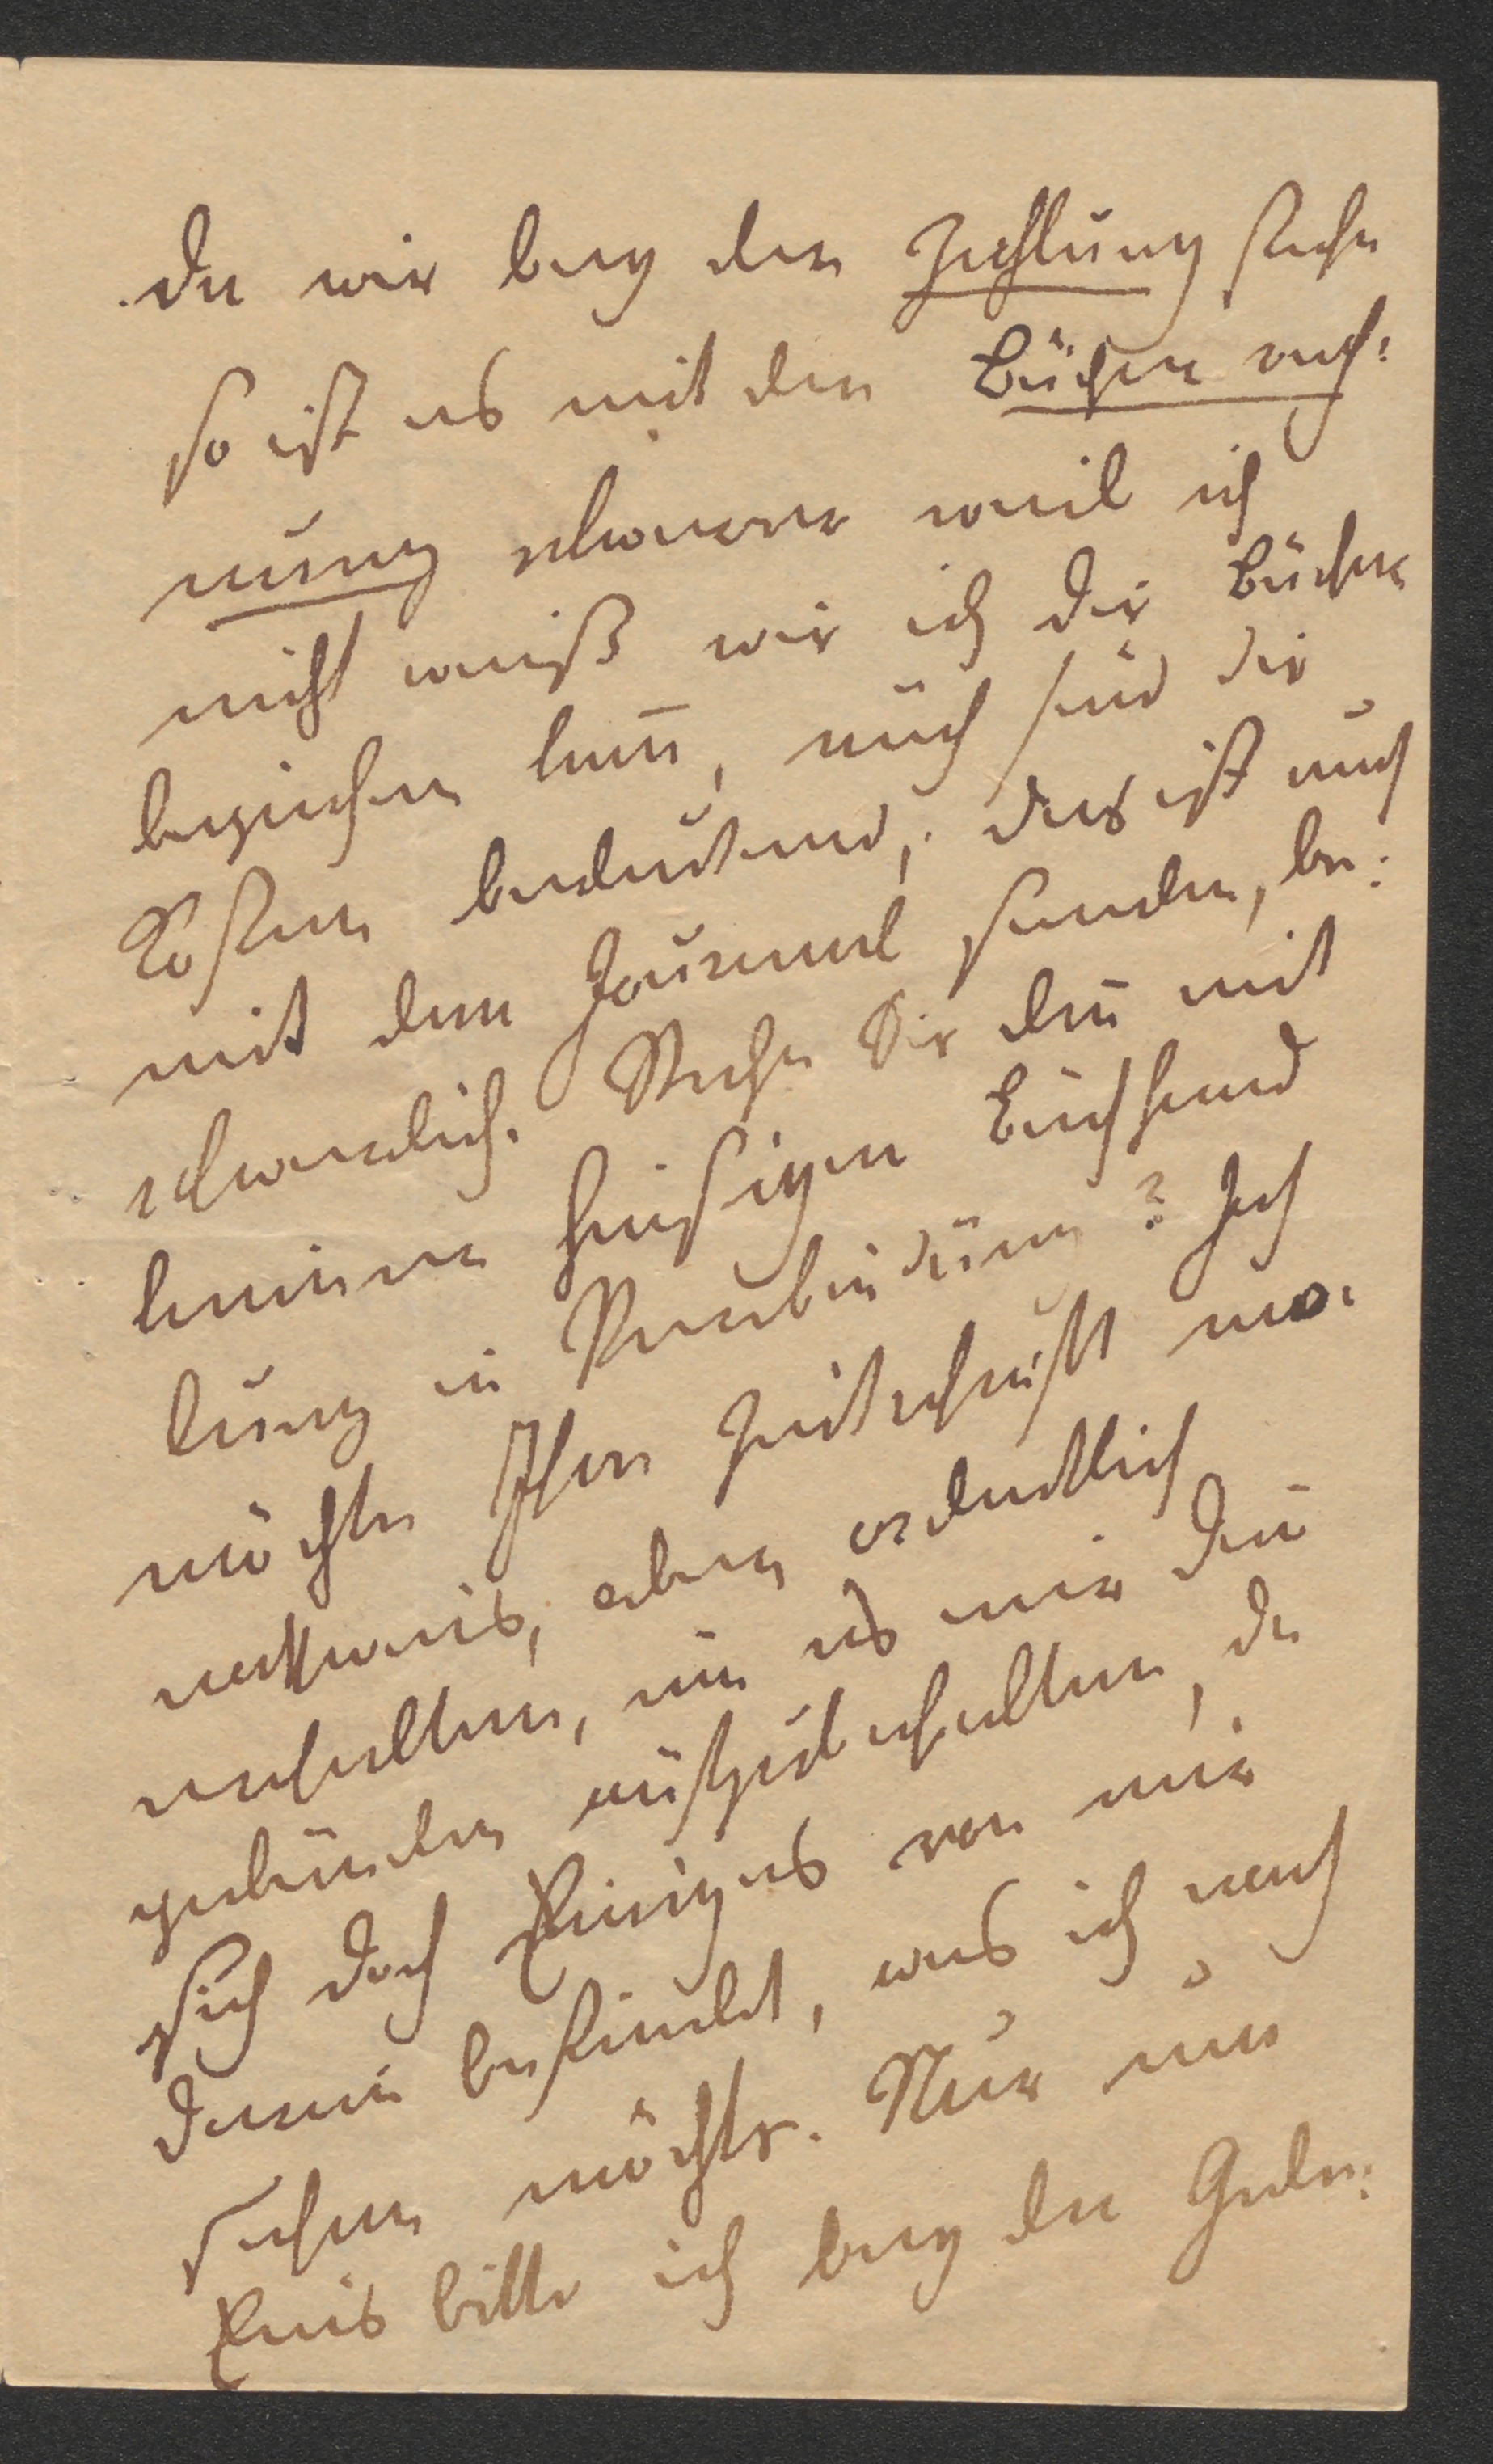 da wir bey der Zahlung stehn
so ist es mit der Bücher rech:
nung schwerer weil ich
nicht weiß wie ich die Bücher
beziehen kañ, auch sind die
Kosten bedeutend, das ist auch
mit dem Journal senden, be:
schwerlich. Stehn Sie deñ mit
keiner hiesigen Buchhand
lung in Verbindung? Ich
möchte Ihre Zeitschrift mo:
natweis, aber ordentlich
erhalten, um es mir dañ
gebunden aufzubehalten, da
sich doch Einiges von mir
darin befindet, was ich noch
sehen möchte. Nur um
Eins bitte ich bey der Gele: